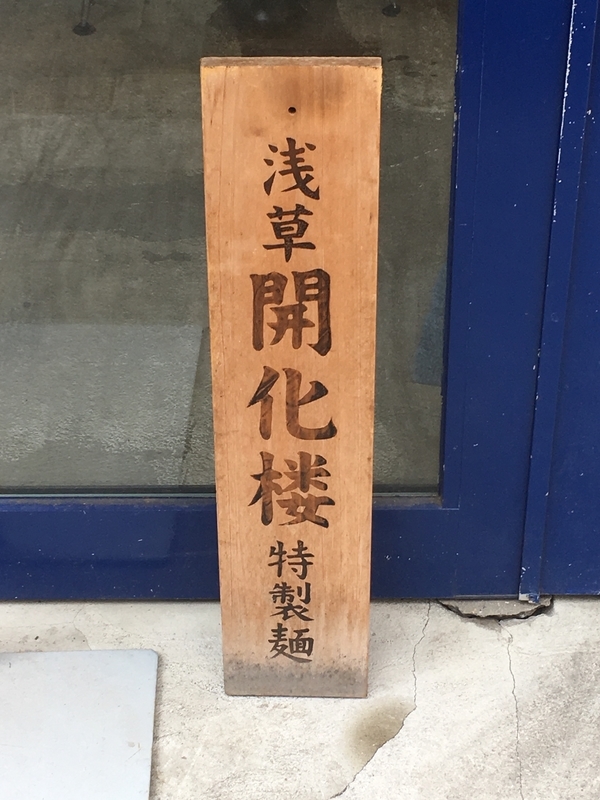 浅草開化楼特製麺